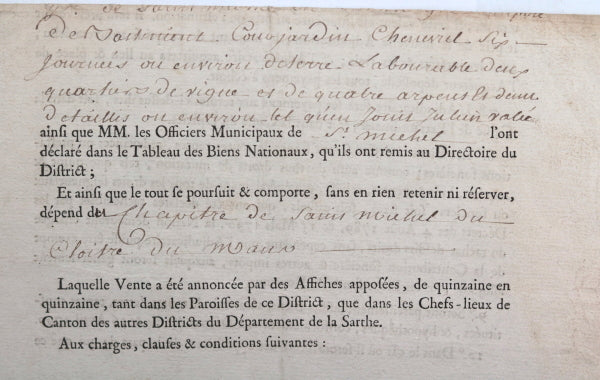 de Saint michel
de Batiment Cour jardin Chenevril Six
Journées ou environ de terre Labourable deux
quartiers de vigne et de quatre arpents et demi
de taillis ou environ tel qu'en Jouit Julien
ainsi que MM. les Officiers Municipaux de St. michel l'ont
déclaré dans le Tableau des Biens Nationaux, qu'ils ont remis au Directoire du
District ;
Et ainsi que le tout se poursuit & comporte, sans en rien retenir ni réserver,
dépend du Chapitre de Saint michel du
Cloitre du mans
Laquelle Vente a été annoncée par des Affiches apposées, de quinzaine en
quinzaine, tant dans les Paroisses de ce District, que dans les Chefs-lieux de
Canton des autres Districts du Département de la Sarthe.
Aux charges, clauses & conditions suivantes :